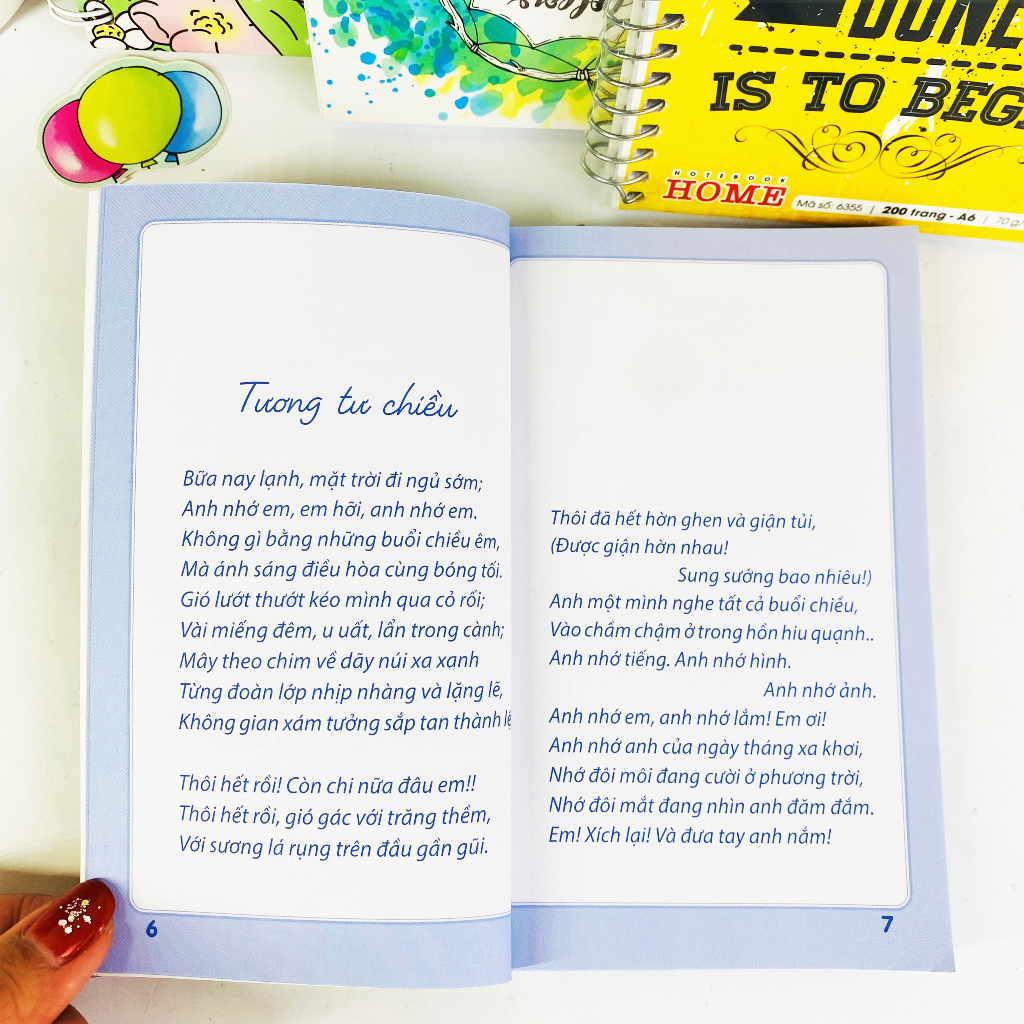 DONE
IS TO BEG
NOTEBOOK
HOME
Mã số: 6355 | 200 trang - A6 | 70 g/
Tương tư chiều
Bữa nay lạnh, mặt trời đi ngủ sớm;
Anh nhớ em, em hỡi, anh nhớ em.
Không gì bằng những buổi chiều êm,
Mà ánh sáng điều hòa cùng bóng tối.
Gió lướt thướt kéo mình qua cỏ rối;
Vài miếng đêm, u uất, lẩn trong cành;
Mây theo chim về dãy núi xa xanh
Từng đoàn lớp nhịp nhàng và lặng lẽ,
Không gian xám tưởng sắp tan thành lệ
Thôi hết rồi! Còn chi nữa đâu em!!
Thôi hết rồi, gió gác với trăng thềm,
Với sương lá rụng trên đầu gần gũi.
6
Thôi đã hết hờn ghen và giận tủi,
(Được giận hờn nhau!
Sung sướng bao nhiêu!)
Anh một mình nghe tất cả buổi chiều,
Vào chầm chậm ở trong hồn hiu quạnh..
Anh nhớ tiếng. Anh nhớ hình.
Anh nhớ ảnh.
Anh nhớ em, anh nhớ lắm! Em ơi!
Anh nhớ anh của ngày tháng xa khơi,
Nhớ đôi môi đang cười ở phương trời,
Nhớ đôi mắt đang nhìn anh đăm đắm.
Em! Xích lại! Và đưa tay anh nắm!
7